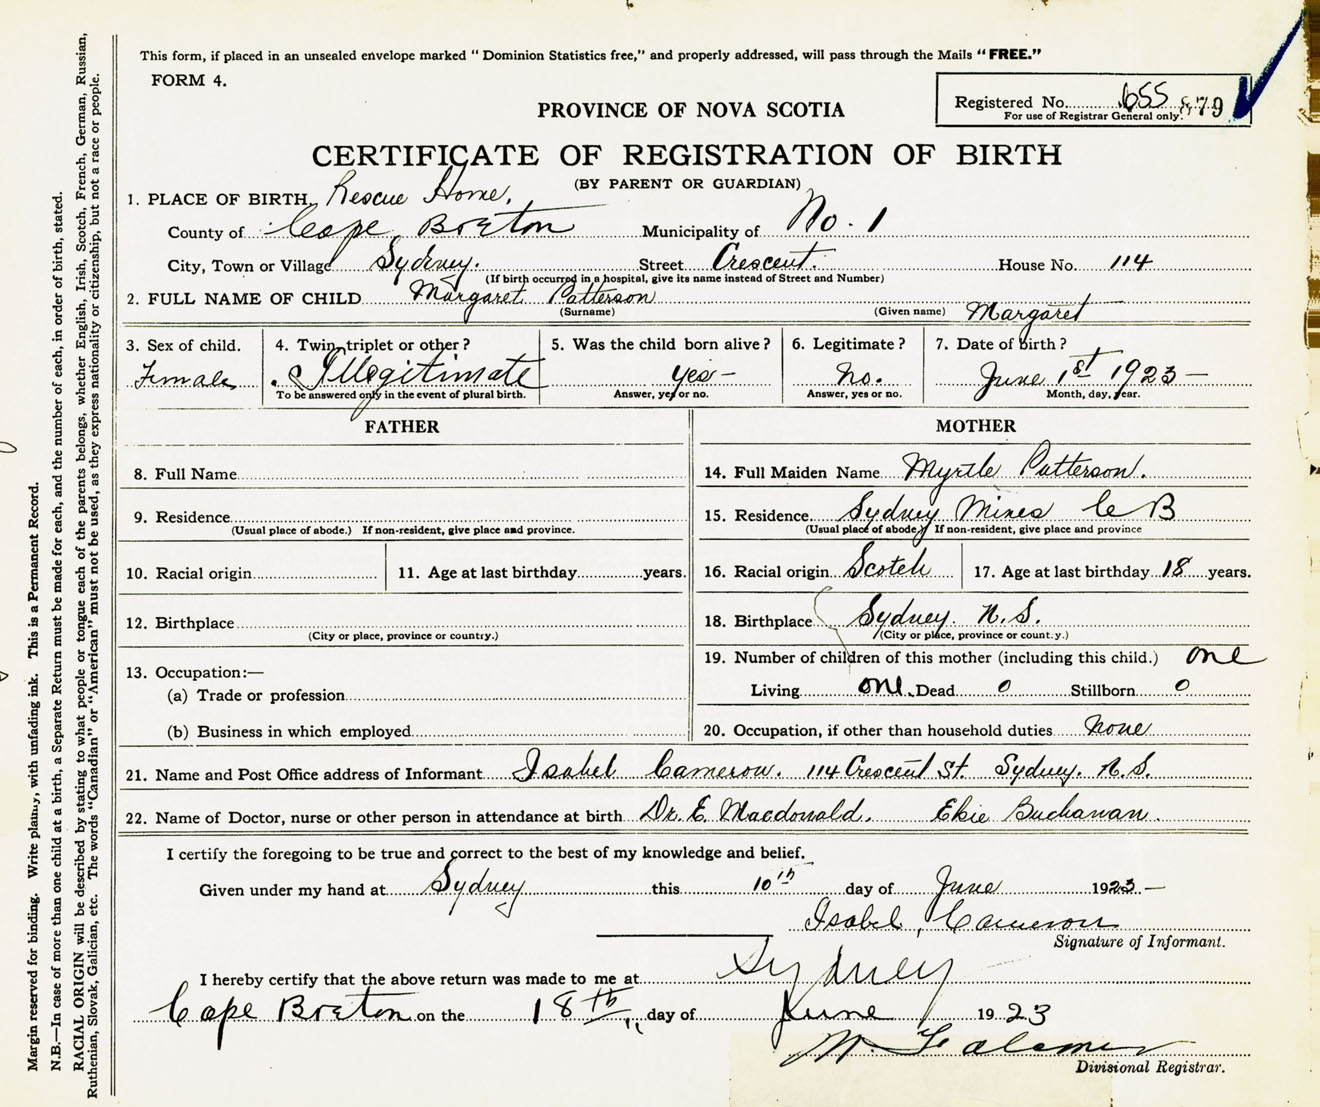 This form, if placed in an unsealed envelope marked "Dominion Statistics free," and properly addressed, will pass through the Mails "FREE."
FORM 4.
Registered No. 655 879
For use of Registrar General only.
PROVINCE OF NOVA SCOTIA
CERTIFICATE OF REGISTRATION OF BIRTH
(BY PARENT OR GUARDIAN)
1. PLACE OF BIRTH, Rescue Home,
County of Cape Breton Municipality of No. 1
City, Town or Village Sydney. Street Crescent. House No. 114
(If birth occurred in a hospital, give its name instead of Street and Number)
2. FULL NAME OF CHILD Margaret Patterson Margaret
(Surname) (Given name)
3. Sex of child. 4. Twin, triplet or other? 5. Was the child born alive? 6. Legitimate? 7. Date of birth?
Female Illegitimate yes- no. June 1st 1923-
To be answered only in the event of plural birth. Answer, yes or no. Answer, yes or no. Month, day, year.
FATHER MOTHER
8. Full Name 14. Full Maiden Name Myrtle Patterson.
9. Residence 15. Residence Sydney Mines C B
(Usual place of abode.) If non-resident, give place and province. (Usual place of abode.) If non-resident, give place and province
10. Racial origin 11. Age at last birthday years. 16. Racial origin Scotch 17. Age at last birthday 18 years.
12. Birthplace 18. Birthplace Sydney. N.S.
(City or place, province or country.) (City or place, province or count.y.)
13. Occupation:— 19. Number of children of this mother (including this child.) one
(a) Trade or profession Living one. Dead 0 Stillborn 0
(b) Business in which employed 20. Occupation, if other than household duties none
21. Name and Post Office address of Informant Isabel Cameron. 114 Crescent St. Sydney. N.S.
22. Name of Doctor, nurse or other person in attendance at birth Dr. E. Macdonald. Buchanan.
I certify the foregoing to be true and correct to the best of my knowledge and belief.
Given under my hand at Sydney this 10th day of June 1923-
Isabel Cameron
Signature of Informant.
I hereby certify that the above return was made to me at Sydney
Cape Breton on the 18th day of June 1923
Divisional Registrar.
Margin reserved for binding. Write plainly, with unfading ink. This is a Permanent Record.
N.B.—In case of more than one child at a birth, a Separate Return must be made for each, and the number of each, in order of birth, stated.
RACIAL ORIGIN will be described by stating to what people or tongue each of the parents belongs, whether English, Irish, Scotch, French, German, Russian,
Ruthenian, Slovak, Galician, etc. The words "Canadian" or "American" must not be used, as they express nationality or citizenship, but not a race or people.